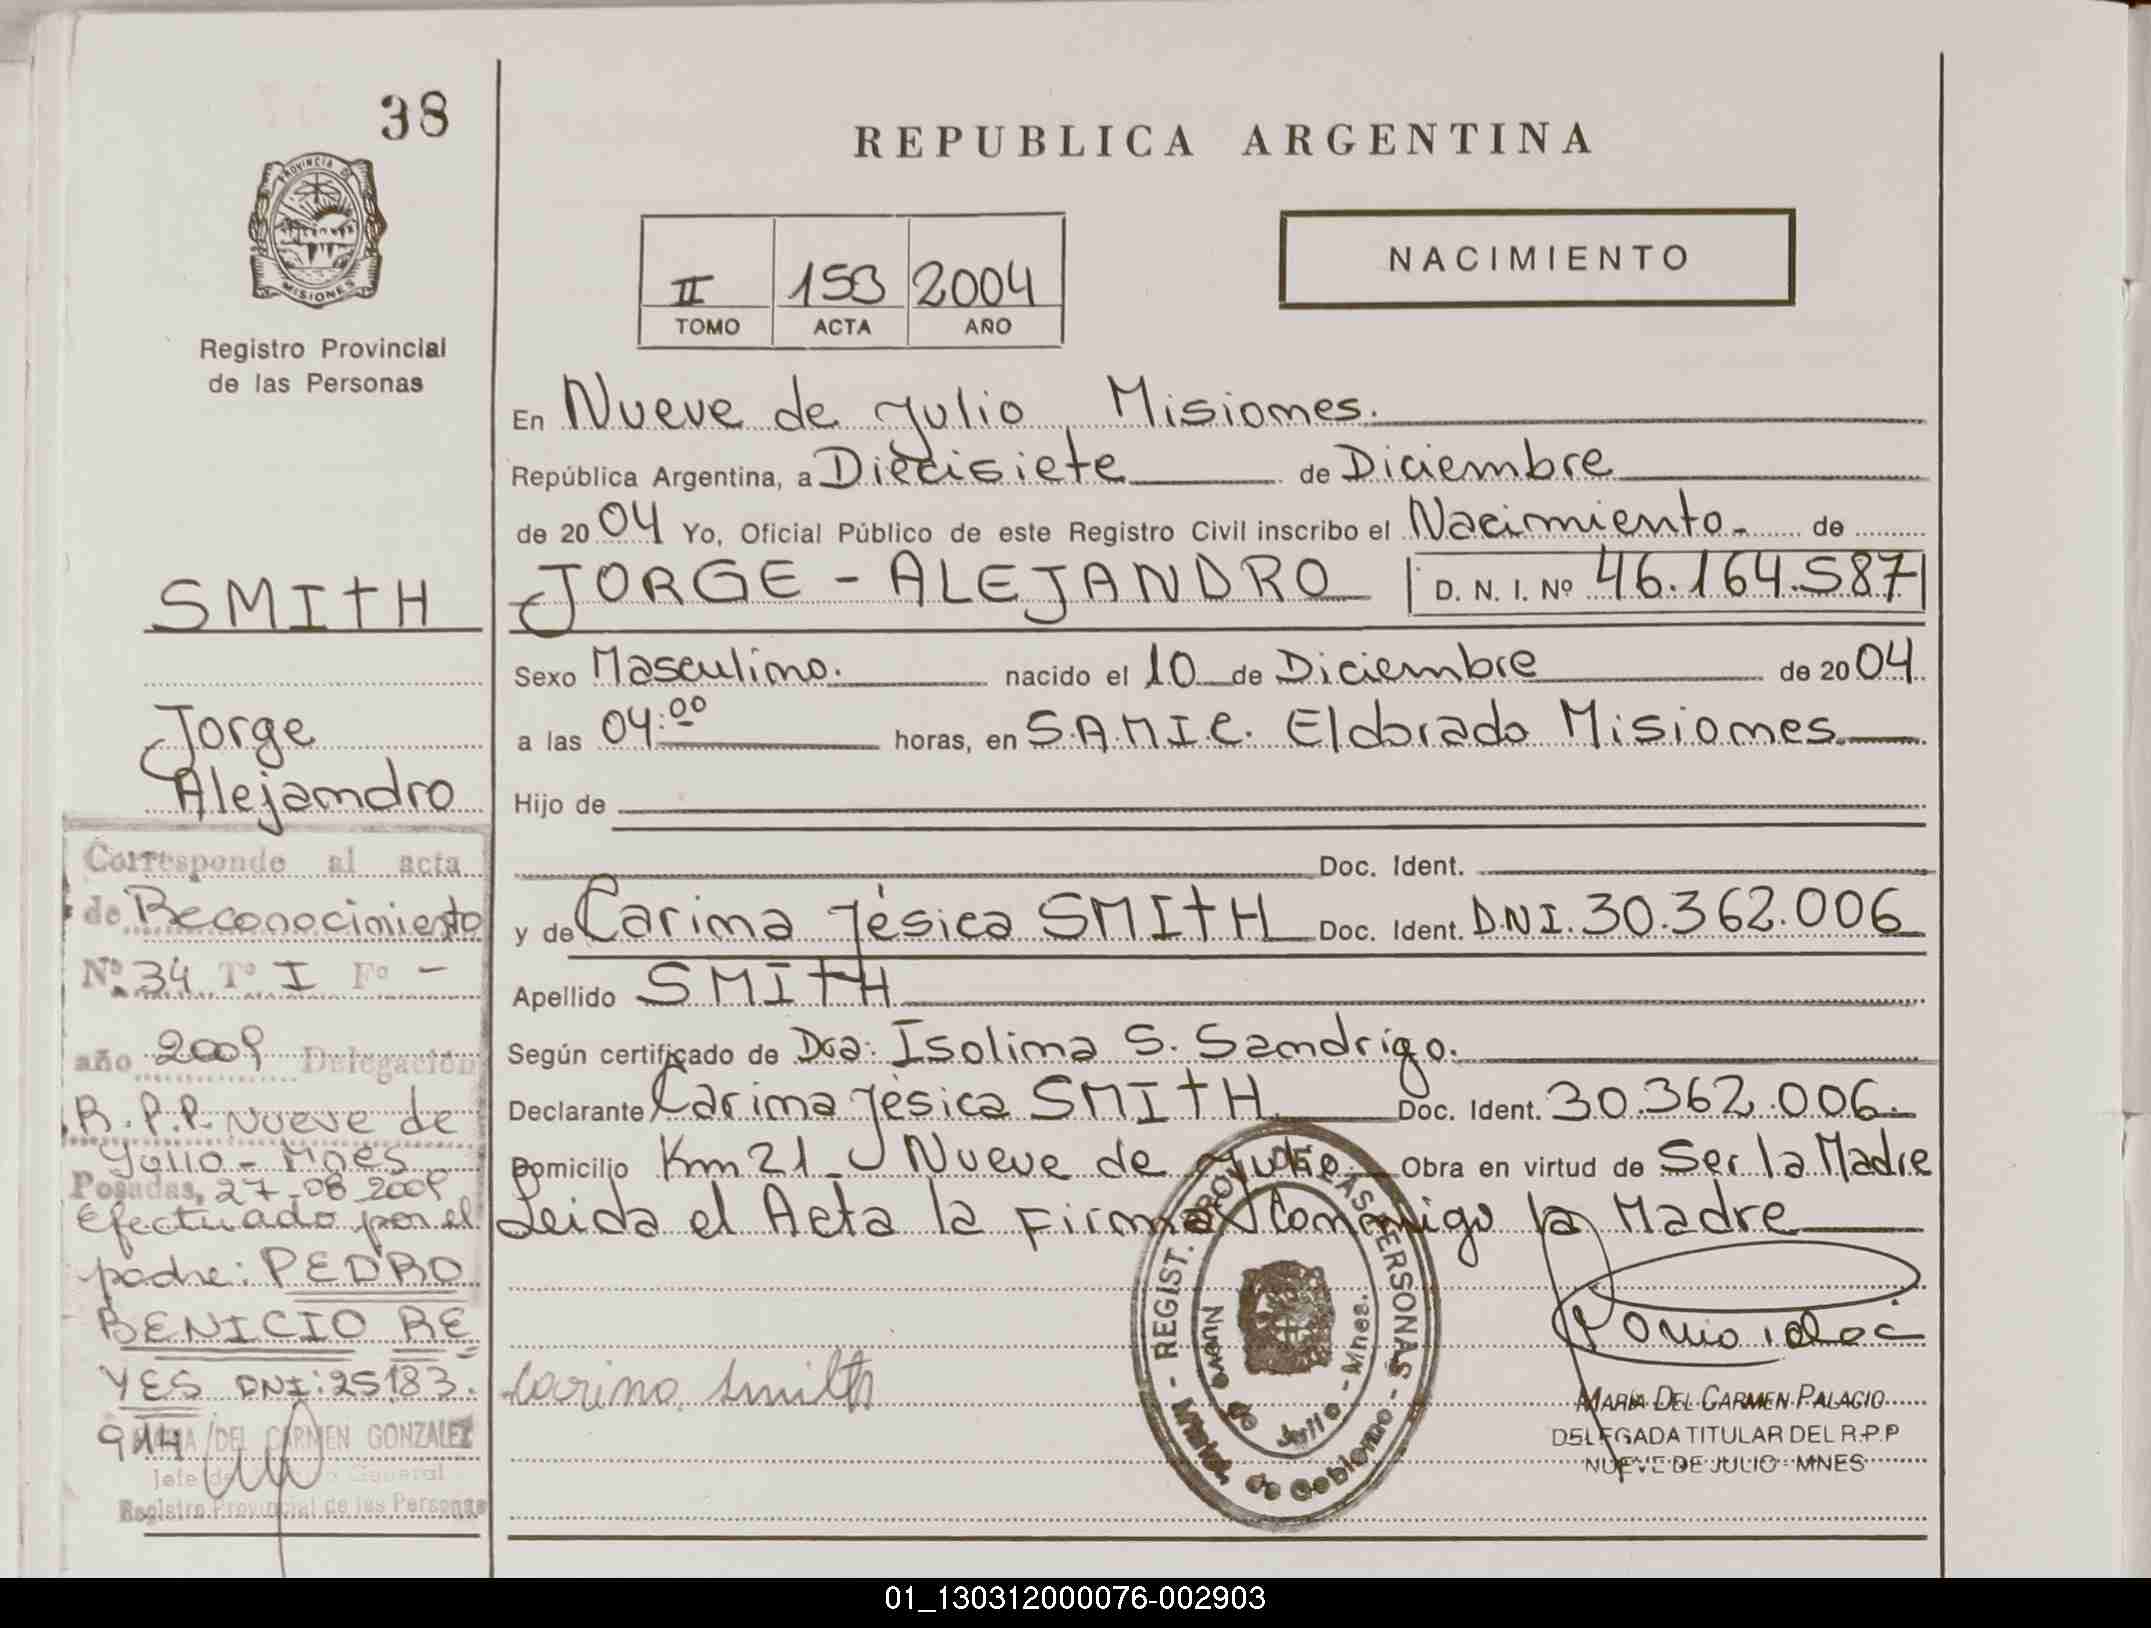 38
PROVINCIA DE
MISIONES
Registro Provincial
de las Personas
SMITH
Jorge
Alejandro
Corresponde al acta
de Reconocimiento
Nº 34 Tº I Fº -
año 2009 Delegación
R.P.P. Nueve de
Julio - Mnes
Posadas, 27-08-2009
Efectuado por el
padre: PEDRO
BENICIO RE
YES DNI: 25183.
914
DEL CARMEN GONZALEZ
Jefe de General
Registro Provincial de las Personas
REPUBLICA ARGENTINA
II 153 2004
TOMO ACTA AÑO
NACIMIENTO
En Nueve de Julio Misiones.
República Argentina, a Diecisiete de Diciembre
de 2004 Yo, Oficial Público de este Registro Civil inscribo el Nacimiento- de
JORGE - ALEJANDRO D. N. I. Nº 46.164.587
Sexo Masculino. nacido el 10 de Diciembre de 2004.
a las 04:00 horas, en S.A.M.I.C. Eldorado Misiones
Hijo de
Doc. Ident.
y de Carina Jésica SMITH Doc. Ident. D.N.I. 30.362.006
Apellido SMITH
Según certificado de Dra: Isolina S. Sandrigo.
Declarante Carina Jésica SMITH Doc. Ident. 30.362.006.
Domicilio Km 21 - Nueve de Julio. Obra en virtud de Ser la Madre
Leida el Acta la Firma Conmigo la Madre
Carina Smith
REGIST. PROV. DE LAS PERSONAS - Minist. de Gobierno -
Nueve de Julio - Mnes.
MARIA DEL CARMEN PALACIO
DELEGADA TITULAR DEL R.P.P
NUEVE DE JULIO - MNES
01_130312000076-002903